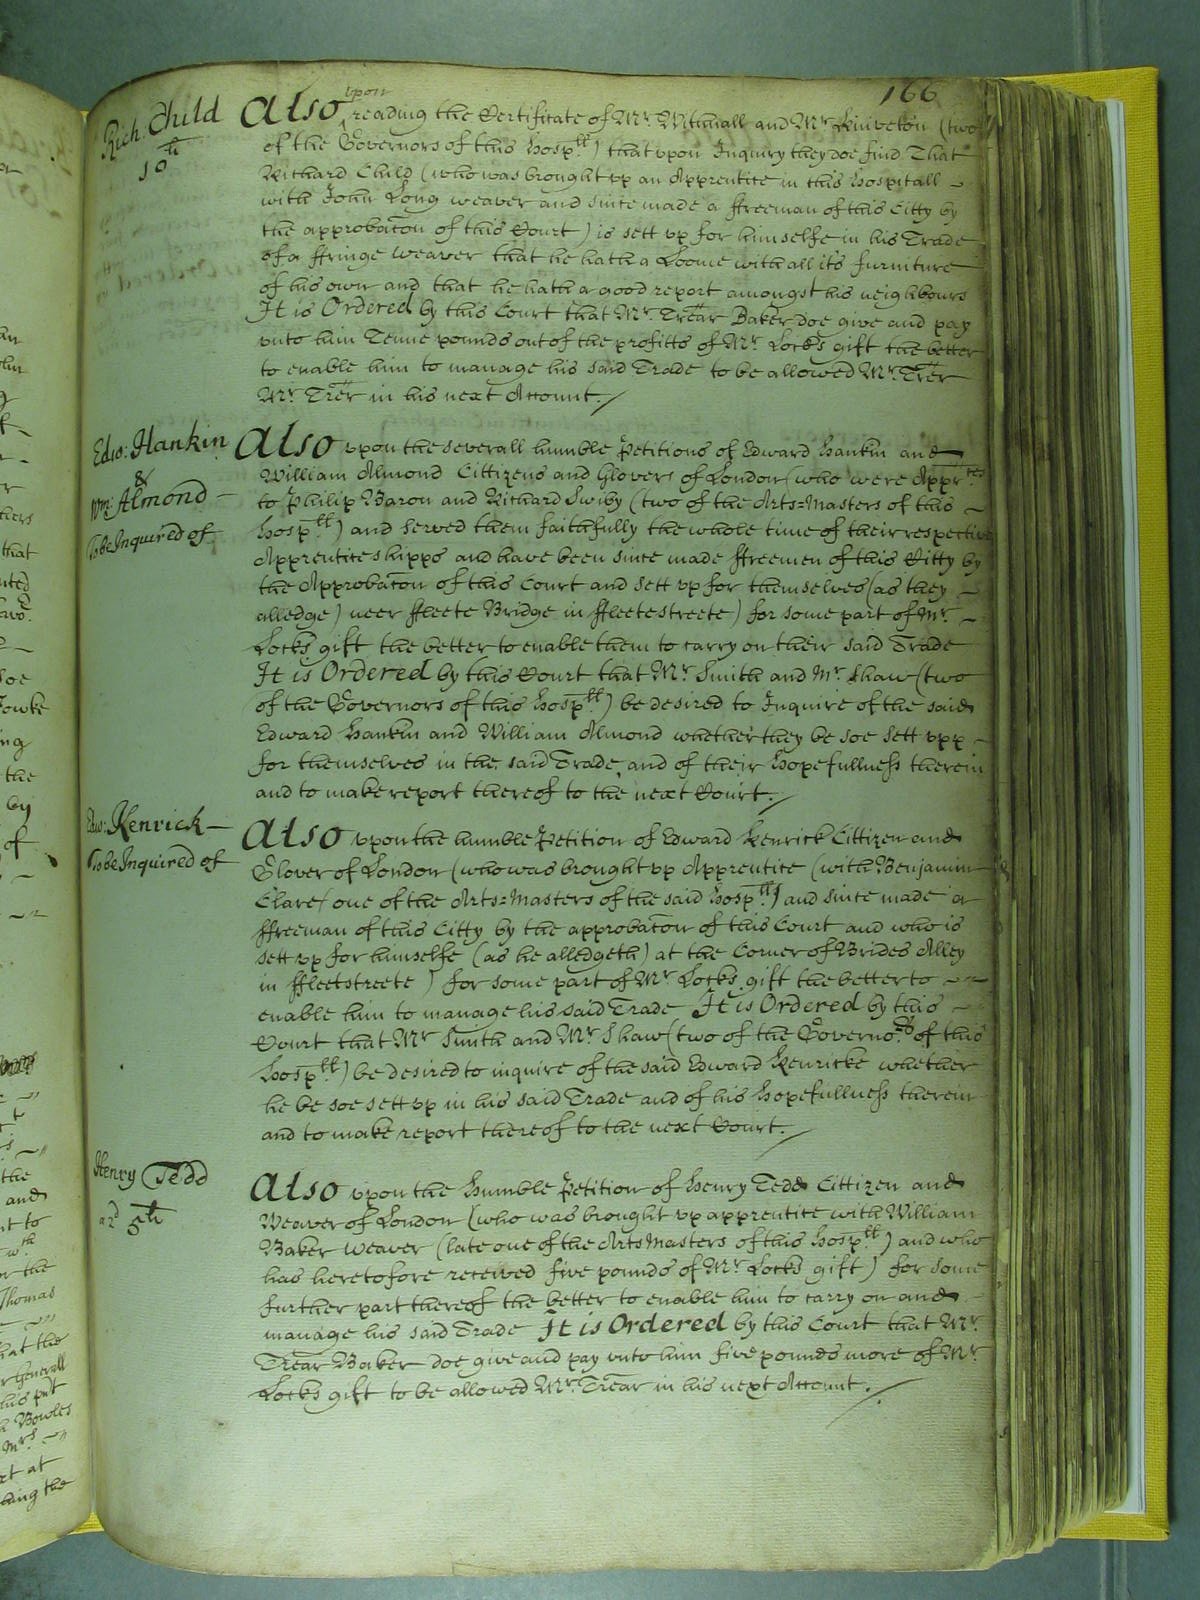 166
Rich: Child
10li
Also upon reading the Certificate of Mr. Withnall and Mr Kinveton (two
of the Governors of this Hospll) that upon Inquiry they doe find That
Richard Child (who was brought up an Apprentice in this Hospitall
with John Long weaver and since made a ffreeman of this Citty by
the approbacon of this Court) is sett up for himselfe in his Trade
of a ffringe weaver that he hath a Loome with all its furniture
of his own and that he hath a good report amongst his neighbours
It is Ordered by this Court that Mr. Trear Baker doe give and pay
unto him Tenne pounds out of the profitts of Mr Locks gift the better
to enable him to manage his said Trade to be allowed Mr. Trer
Mr. Trer in his next Account.
Edw: Hankin
&
Wm: Almond
To be Inquired of
Also upon the severall humble Petitions of Edward Hankin and
William Almond Cittizens and Glovers of London (who were Apprtes
to Philip Baron and Richard Swiby (two of the Arts=Masters of this
Hospll) and served them faithfully the whole time of their respective
Apprenticeshipps and have been since made ffreemen of this Citty by
the Approbacon of this Court and sett up for themselves (as they
alledge) neer ffleete Bridge in ffleetestreete) for some part of Mr.
Locks gift the better to enable them to carry on their said Trade
It is Ordered by this Court that Mr Smith and Mr Shaw (two
of the Governors of this Hospll) be desired to Inquire of the said
Edward Hankin and William Almond whether they be soe sett upp
for themselves in the said Trade and of their Hopefullness therein
and to make report thereof to the next Court.
Edw: Kenrick
To be Inquired of
Also upon the humble Petition of Edward Kenrick Cittizen and
Glover of London (who was brought up Apprentice (with Benjamin
Clare (one of the Arts=Masters of the said Hospll) and since made a
ffreeman of this Citty by the approbacon of this Court and who is
sett up for himselfe (as he alledgeth) at the Corner of Brides Alley
in ffleetstreete) for some part of Mr Locks gift the better to
enable him to manage his said Trade It is Ordered by this
Court that Mr Smith and Mr Shaw (two of the Governors of this
Hospll) be desired to inquire of the said Edward Kenricke whether
he be soe sett up in his said Trade and of his Hopefullness therein
and to make report thereof to the next Court.
Henry Tedd
5li
Also upon the Humble Petition of Henry Tedd Cittizen and
Weaver of London (who was brought up apprentice with William
Baker weaver (late one of the Arts Masters of this Hospll) and who
has heretofore received five pounds of Mr Locks gift) for some
further part thereof the better to enable him to carry on and
manage his said Trade It is Ordered by this Court that Mr.
Trear Baker doe give and pay unto him five pounds more of Mr
Locks gift to be allowed Mr. Trear in his next Account.